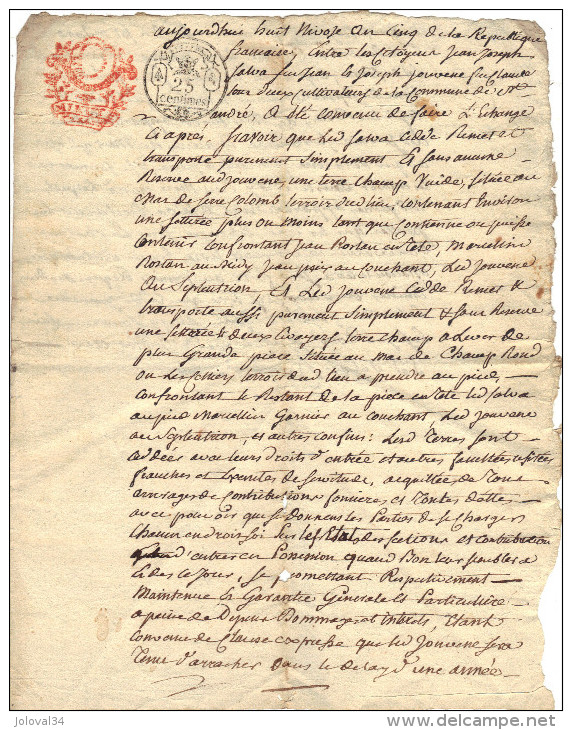 aujourdhuy huit Nivose an Cinq de la Republique
francaise, Entre les Citoyens jean joseph
salva fils jean & joseph jouvene
tous deux cultivateurs de la Commune de St
25
centimes
andré, a été convenu de faire L'Echange
Ciaprès, scavoir que led salva Cedde Remet et
transporte purement simplement Et sans aucune
Reserve aud jouvene, une terre Champ Vuide, située au
Mas de serre Colomb terroir dud lieu, contenant Environ
une setterée plus ou moins tant que contienne ou puisse
Contenir Confrontant jean Rostan en tete, Marcellin
Rostan au Midy jean au Couchant, Led jouvene
au Septentrion, Et Led jouvene Cedde Remet &
transporte aussi purement simplement & sans Reserve
une setterée & deux terre Champ a Lever de
plus Grande piece située au mas de Champ Rond
ou terroir dud lieu a prendre au pied,
confrontant le Restant de la piece en tete led salva
au pied Marcellin Garnier au couchant, Led jouvene
au Septentrion, et autres confins: Lesd Terres sont
Ceddées avec leurs Droits d'entrée et autres facultés usitées
franches et Exemtes de servitude, acquittées de Tous
arrerages de contributions fonciere et Toutes dettes
avec pouvoir que se donnent les Parties de se Charger
Chacun en droit soi sur les Etats des sections et contribution
d'entrer en Possession quand Bon leur semblera
Et des Ce jour, se promettant Respectivement
Maintenue & Garantie Générale & Particuliere
a peine de Depens Dommages et interets, Etant
convenu de Clause expresse que led jouvene sera
Tenu d'arracher dans le delay d'une année
joloval34
www.delcampe.net